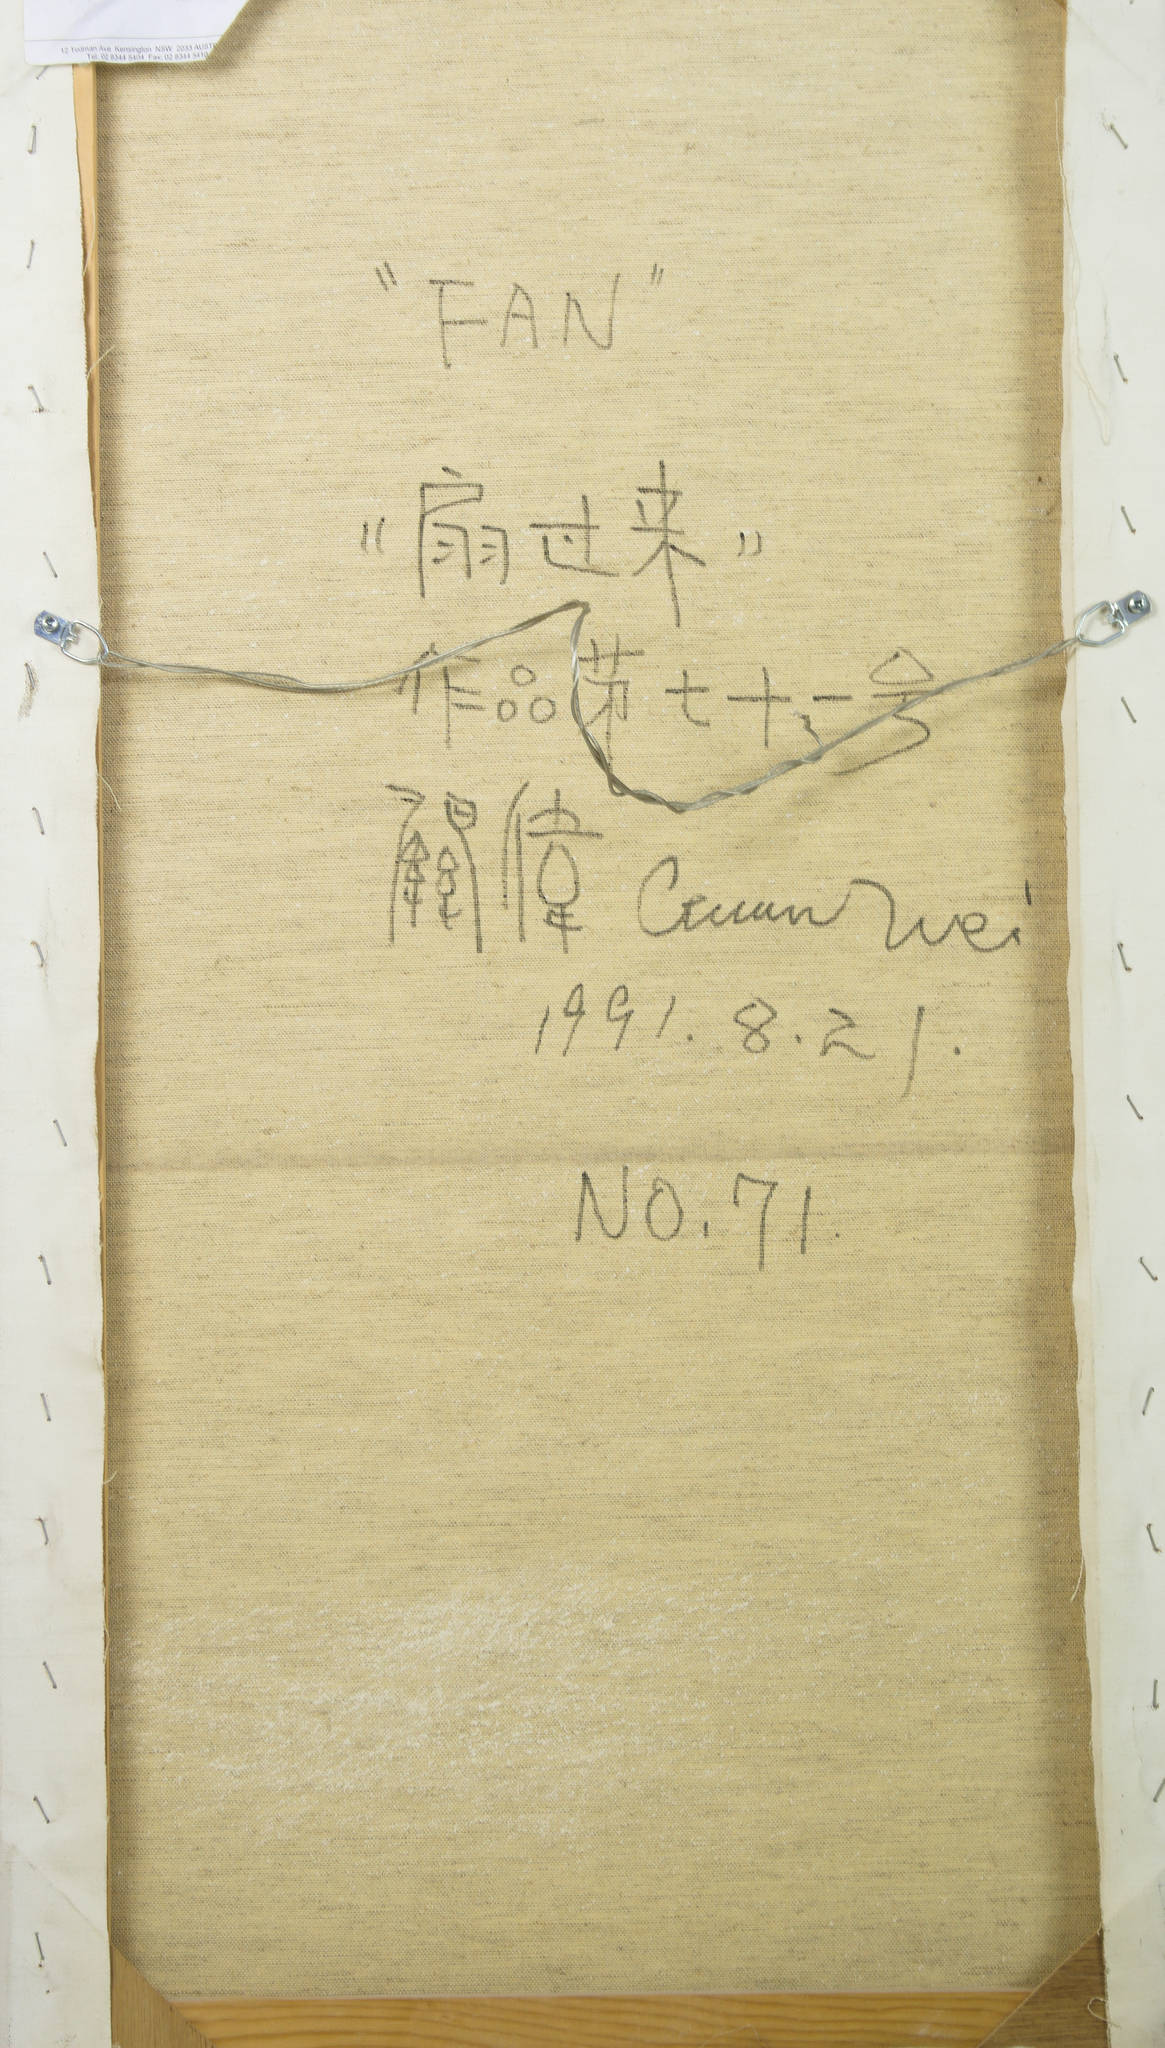 12 Todman Ave Kensington NSW 2033
Tel: 02 8344 5404 Fax: 02 8344 5410
"FAN"
"扇过来"
作品第七十一号
關偉 Guan Wei
1991.8.21.
NO.71.